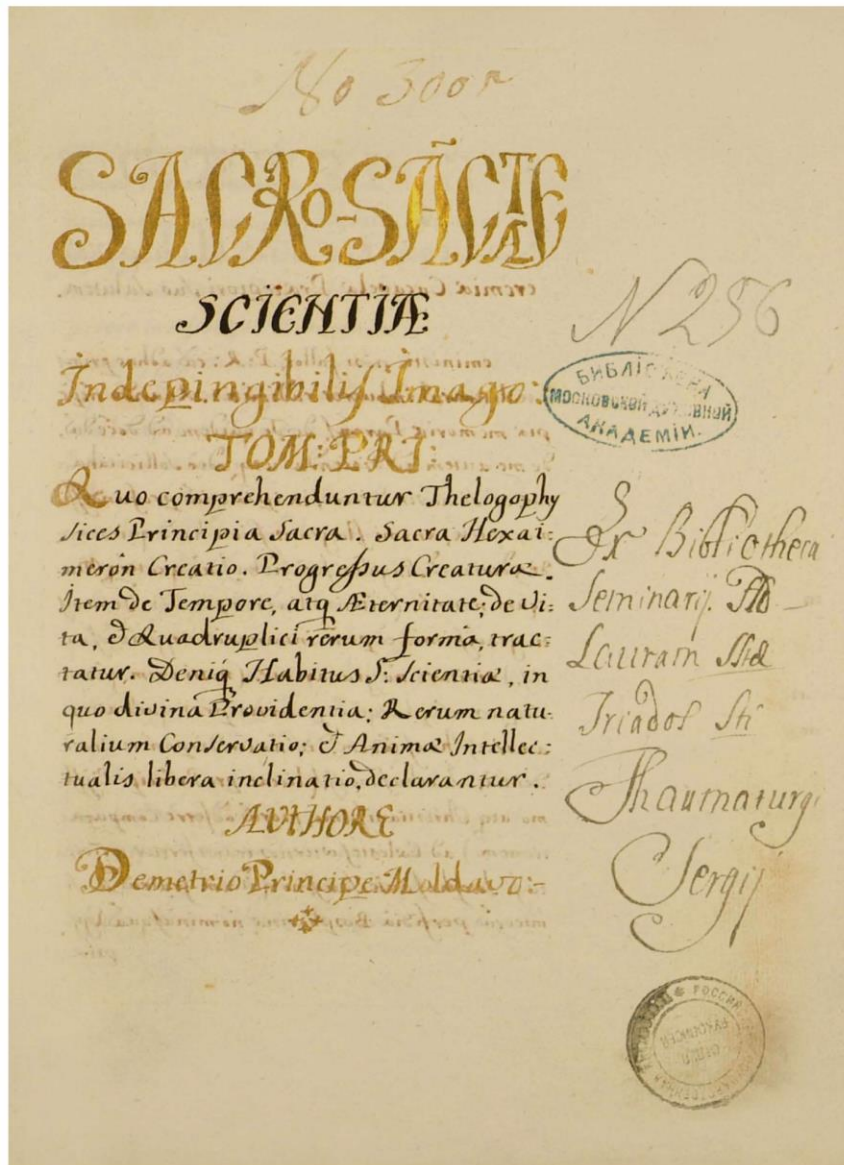 No 3001
SACRO-SÃCTÆ
SCIENTIÆ
Indepingibilis Imago:
TOM: PRI:
Quo comprehenduntur Thelogophy
sices Principia Sacra. Sacra Hexai:
meron Creatio. Progressus Creaturæ.
Item de Tempore, atq Æternitate; de Vi:
ta, & Quadruplici rerum forma, trac:
tatur. Deniq Habitus S: Scientiæ, in
quo divina Providentia; Rerum natu:
ralium Conservatio; & Animæ Intellec:
tualis libera inclinatio, declarantur.
AVTHORE
Demetrio Principe Moldavo:-
N 256
БИБЛІОТЕКА
МОСКОВСКОЙ ДУХОВНОЙ
АКАДЕМІИ.
Ex Bibliotheca
Seminarij
Lauram
Triados Sti
Thaumaturgi
Sergij